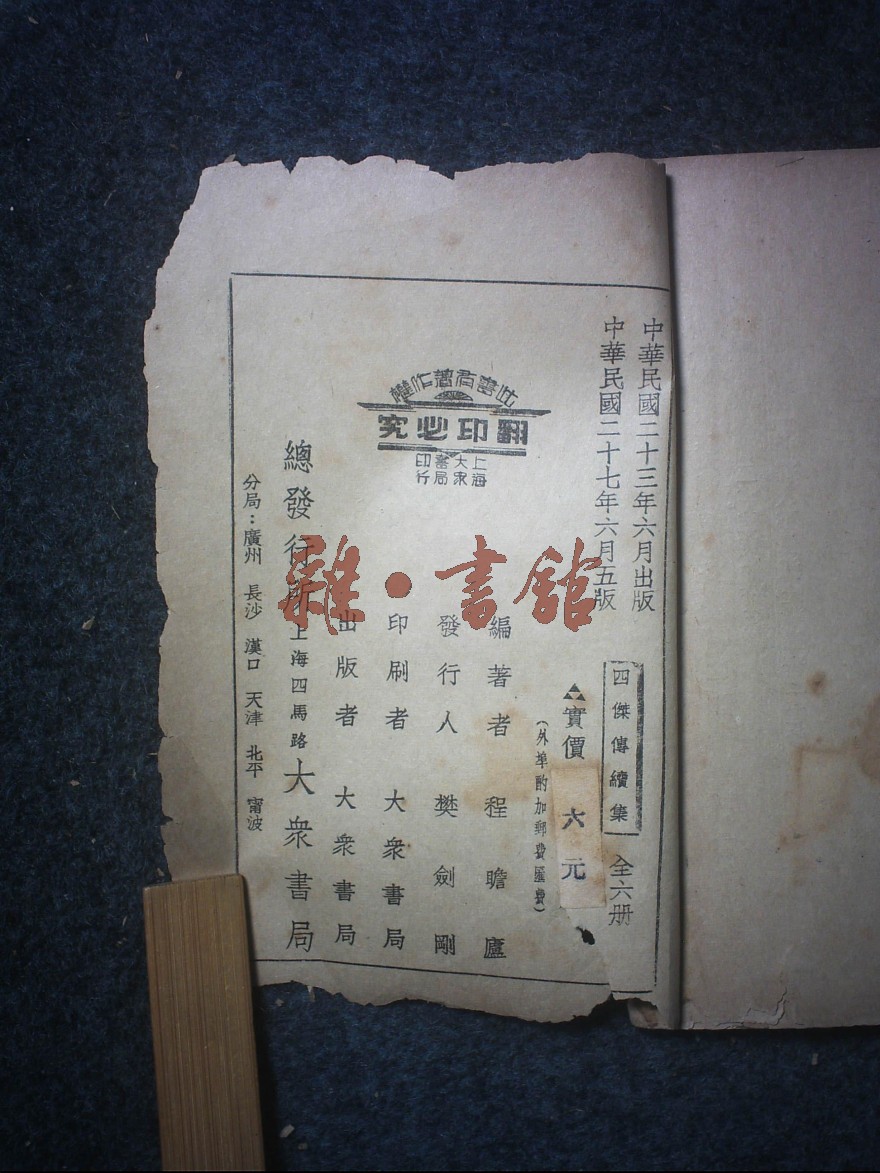 中華民國二十三年六月出版
中華民國二十七年六月五版
四傑傳續集 全六册
實價 六元
(外埠酌加郵費匯費)
編著者 程瞻廬
發行人 樊劍剛
印刷者 大衆書局
出版者 大衆書局
總發行所 上海四馬路 大衆書局
分局：廣州 長沙 漢口 天津 北平 甯波
此書有著作權
翻印必究
上海大衆書局印行
雜·書館